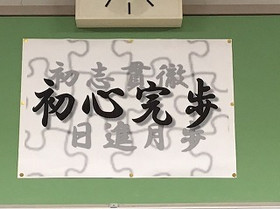 初志貫徹
初心完歩
日進月歩